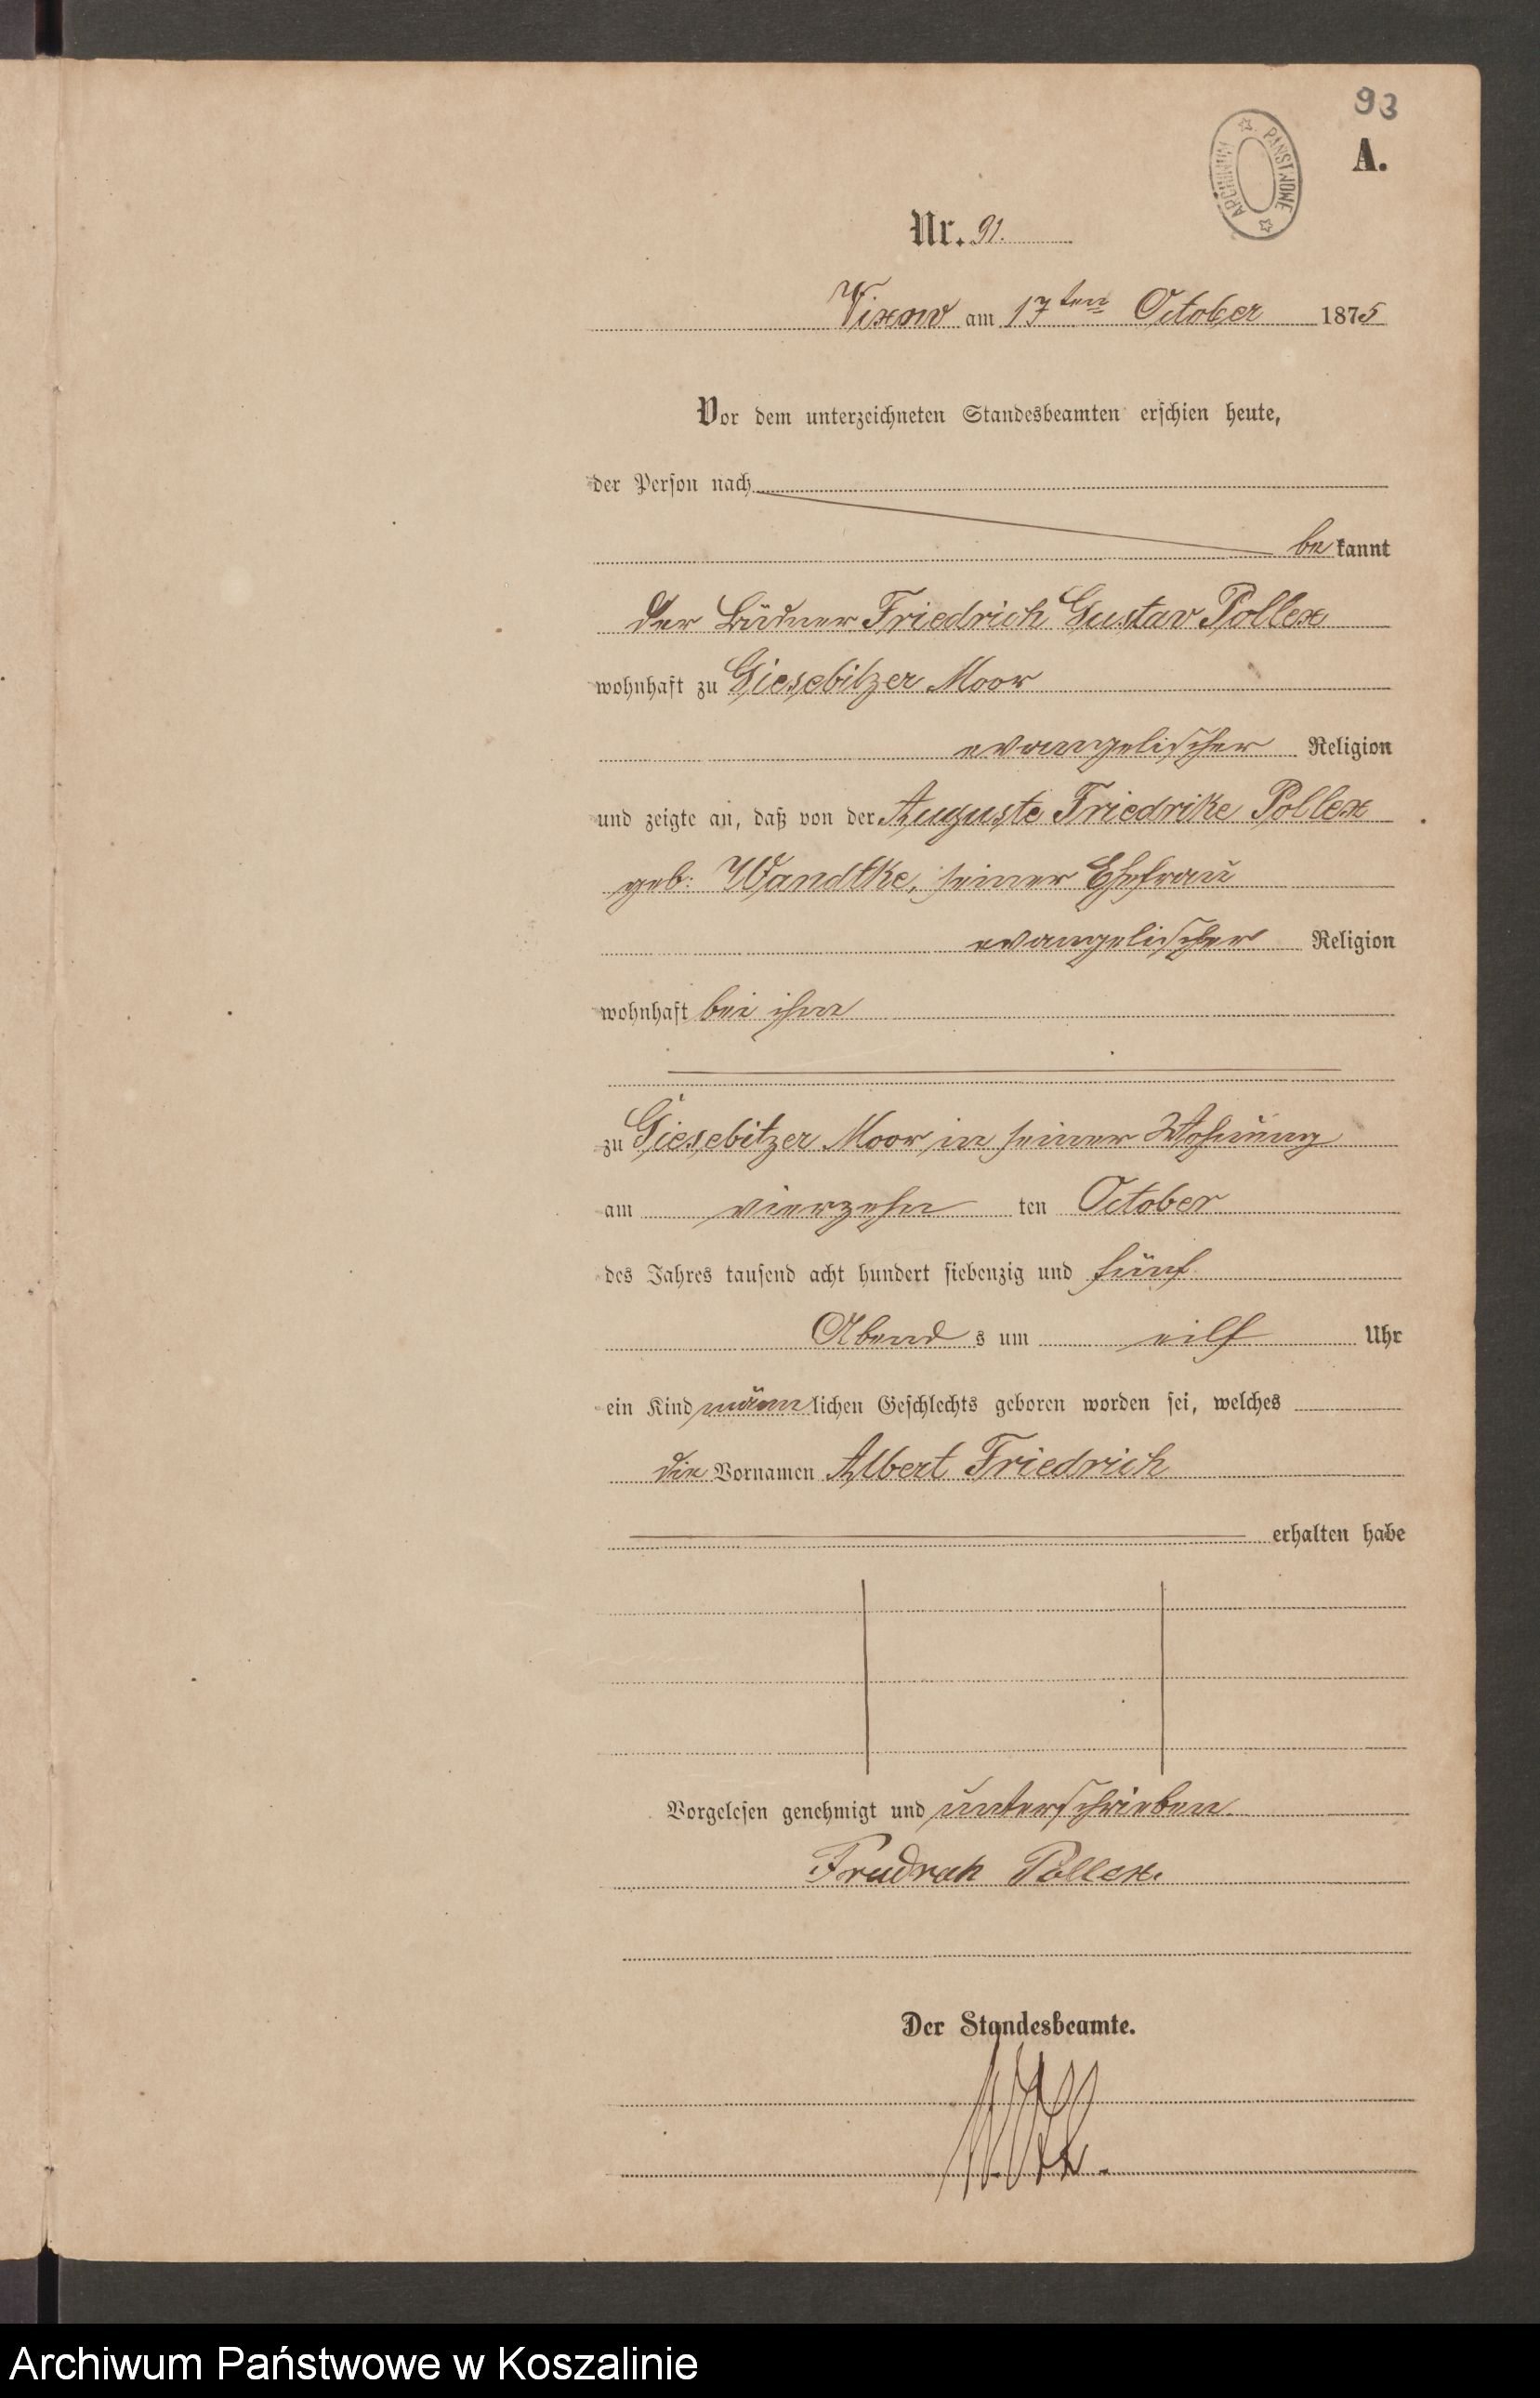 93
ARCHIWUM PAŃSTWOWE
A.
Nr. 91.
Vixow am 17ten October 1875
Vor dem unterzeichneten Standesbeamten erschien heute,
der Person nach
bekannt
der Büdner Friedrich Gustav Pollex
wohnhaft zu Giesebitzer Moor
evangelischer Religion
und zeigte an, daß von der Auguste Friedrike Pollex
geb: Wandtke, seiner Ehefrau
evangelischer Religion
wohnhaft bei ihm
zu Giesebitzer Moor in seiner Wohnung
am vierzehn ten October
des Jahres tausend acht hundert siebenzig und fünf
Abend s um eilf Uhr
ein Kind männlichen Geschlechts geboren worden sei, welches
die Vornamen Albert Friedrich
erhalten habe
Vorgelesen genehmigt und unterschrieben
Pollex.
Der Standesbeamte.
Archiwum Państwowe w Koszalinie